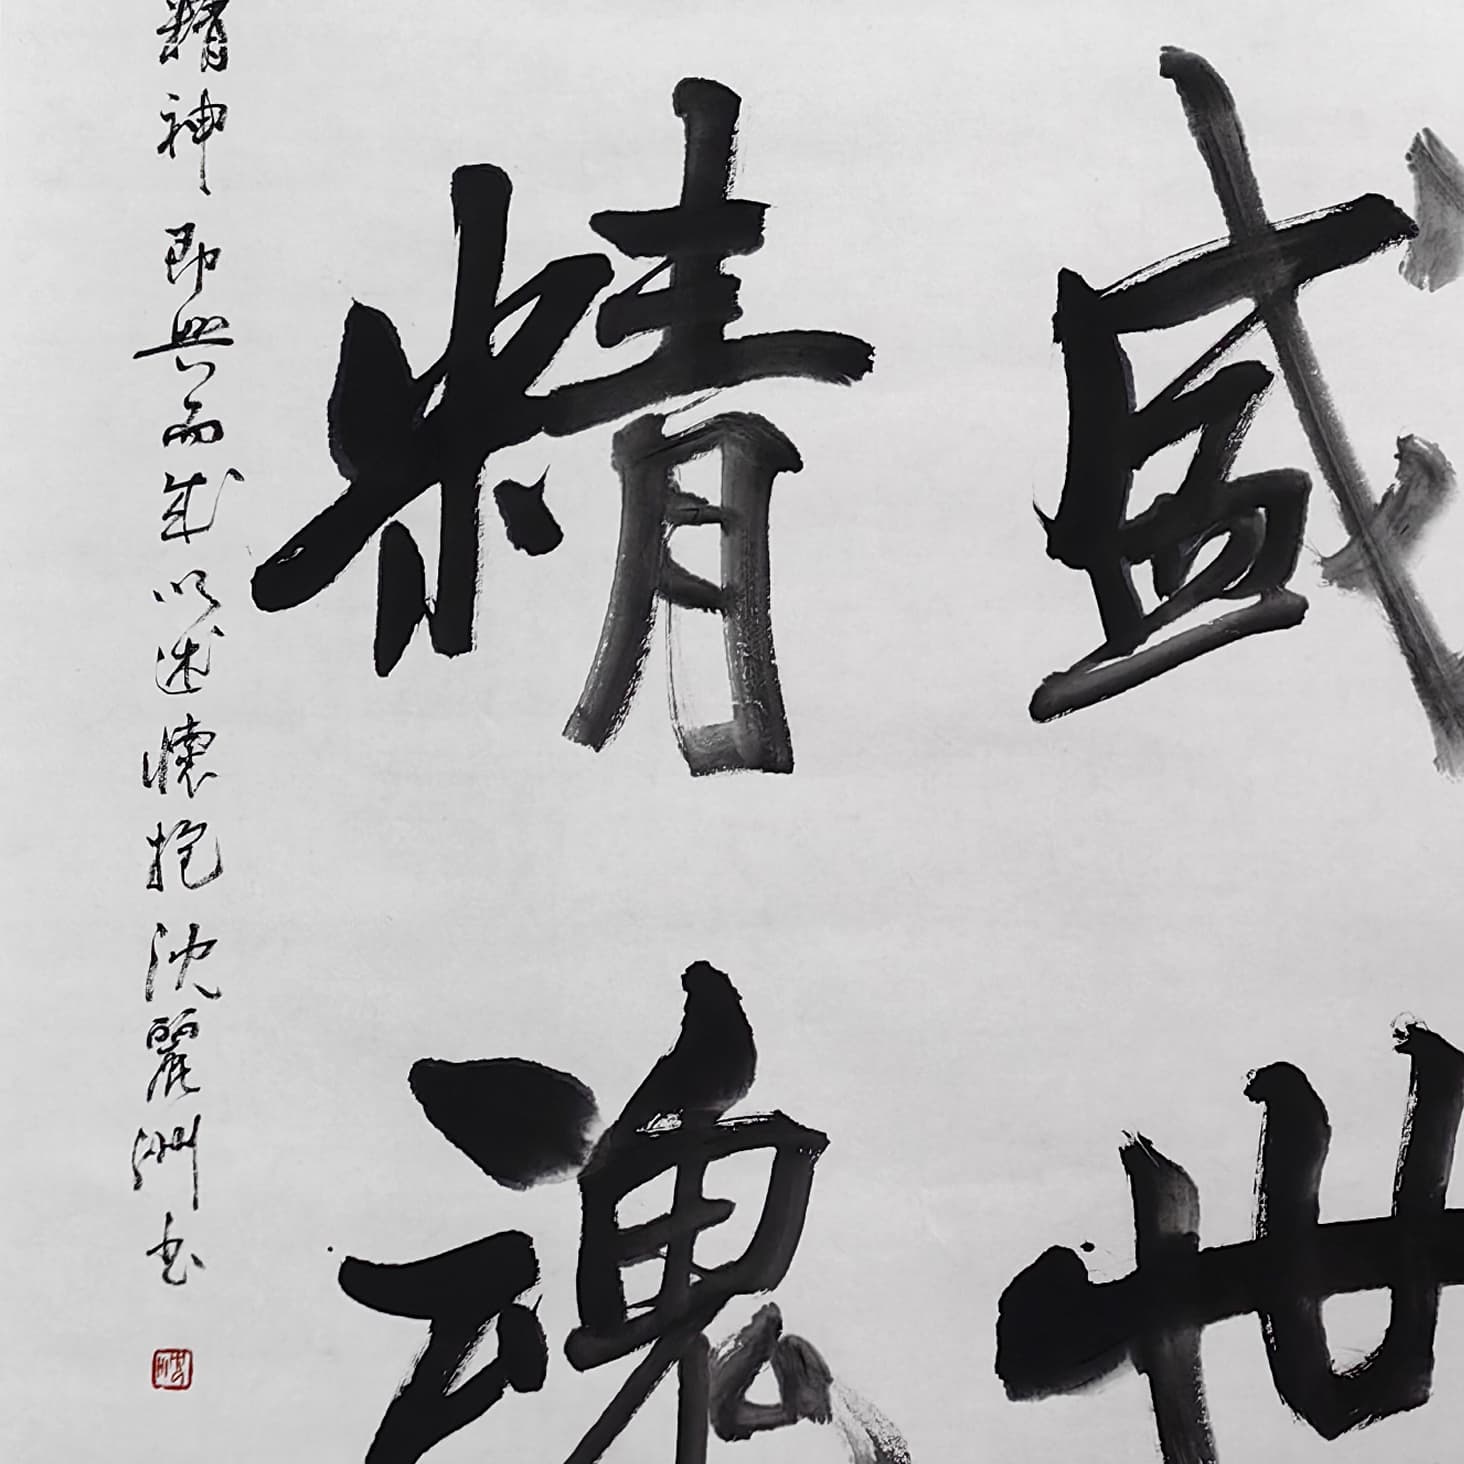 盛世
精魂
精神即興而成以述懷抱沈麗洲书